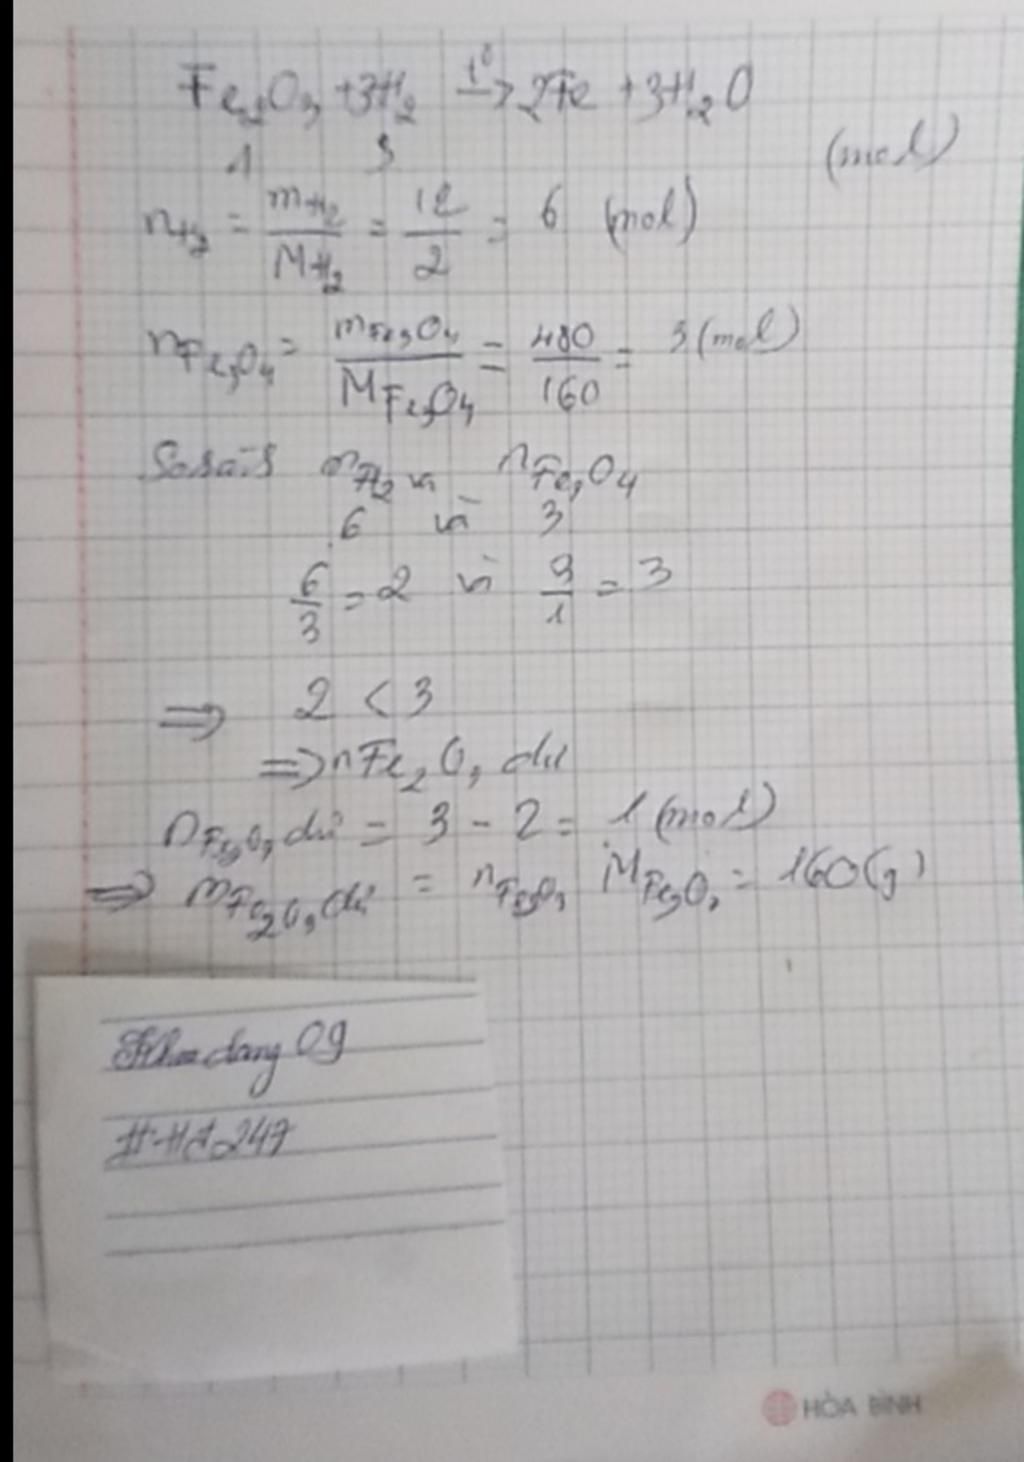 Fe₂O₃ + 3H₂ →t° 2Fe + 3H₂O
1 3 (mol)
nH₂ = mH₂/MH₂ = 12/2 = 6 (mol)
nFe₃O₄ = mFe₃O₄/MFe₃O₄ = 480/160 = 3 (mol)
nH₂ và nFe₃O₄
6 và 3
6/3 = 2 và 3/1 = 3
⇒ 2 < 3
⇒ nFe₂O₃ dư
nFe₂O₃ dư = 3 - 2 = 1 (mol)
⇒ mFe₂O₃ dư = nFe₂O₃ . MFe₂O₃ = 160 (g)
Khoadang09
HH1247
HÒA BÌNH